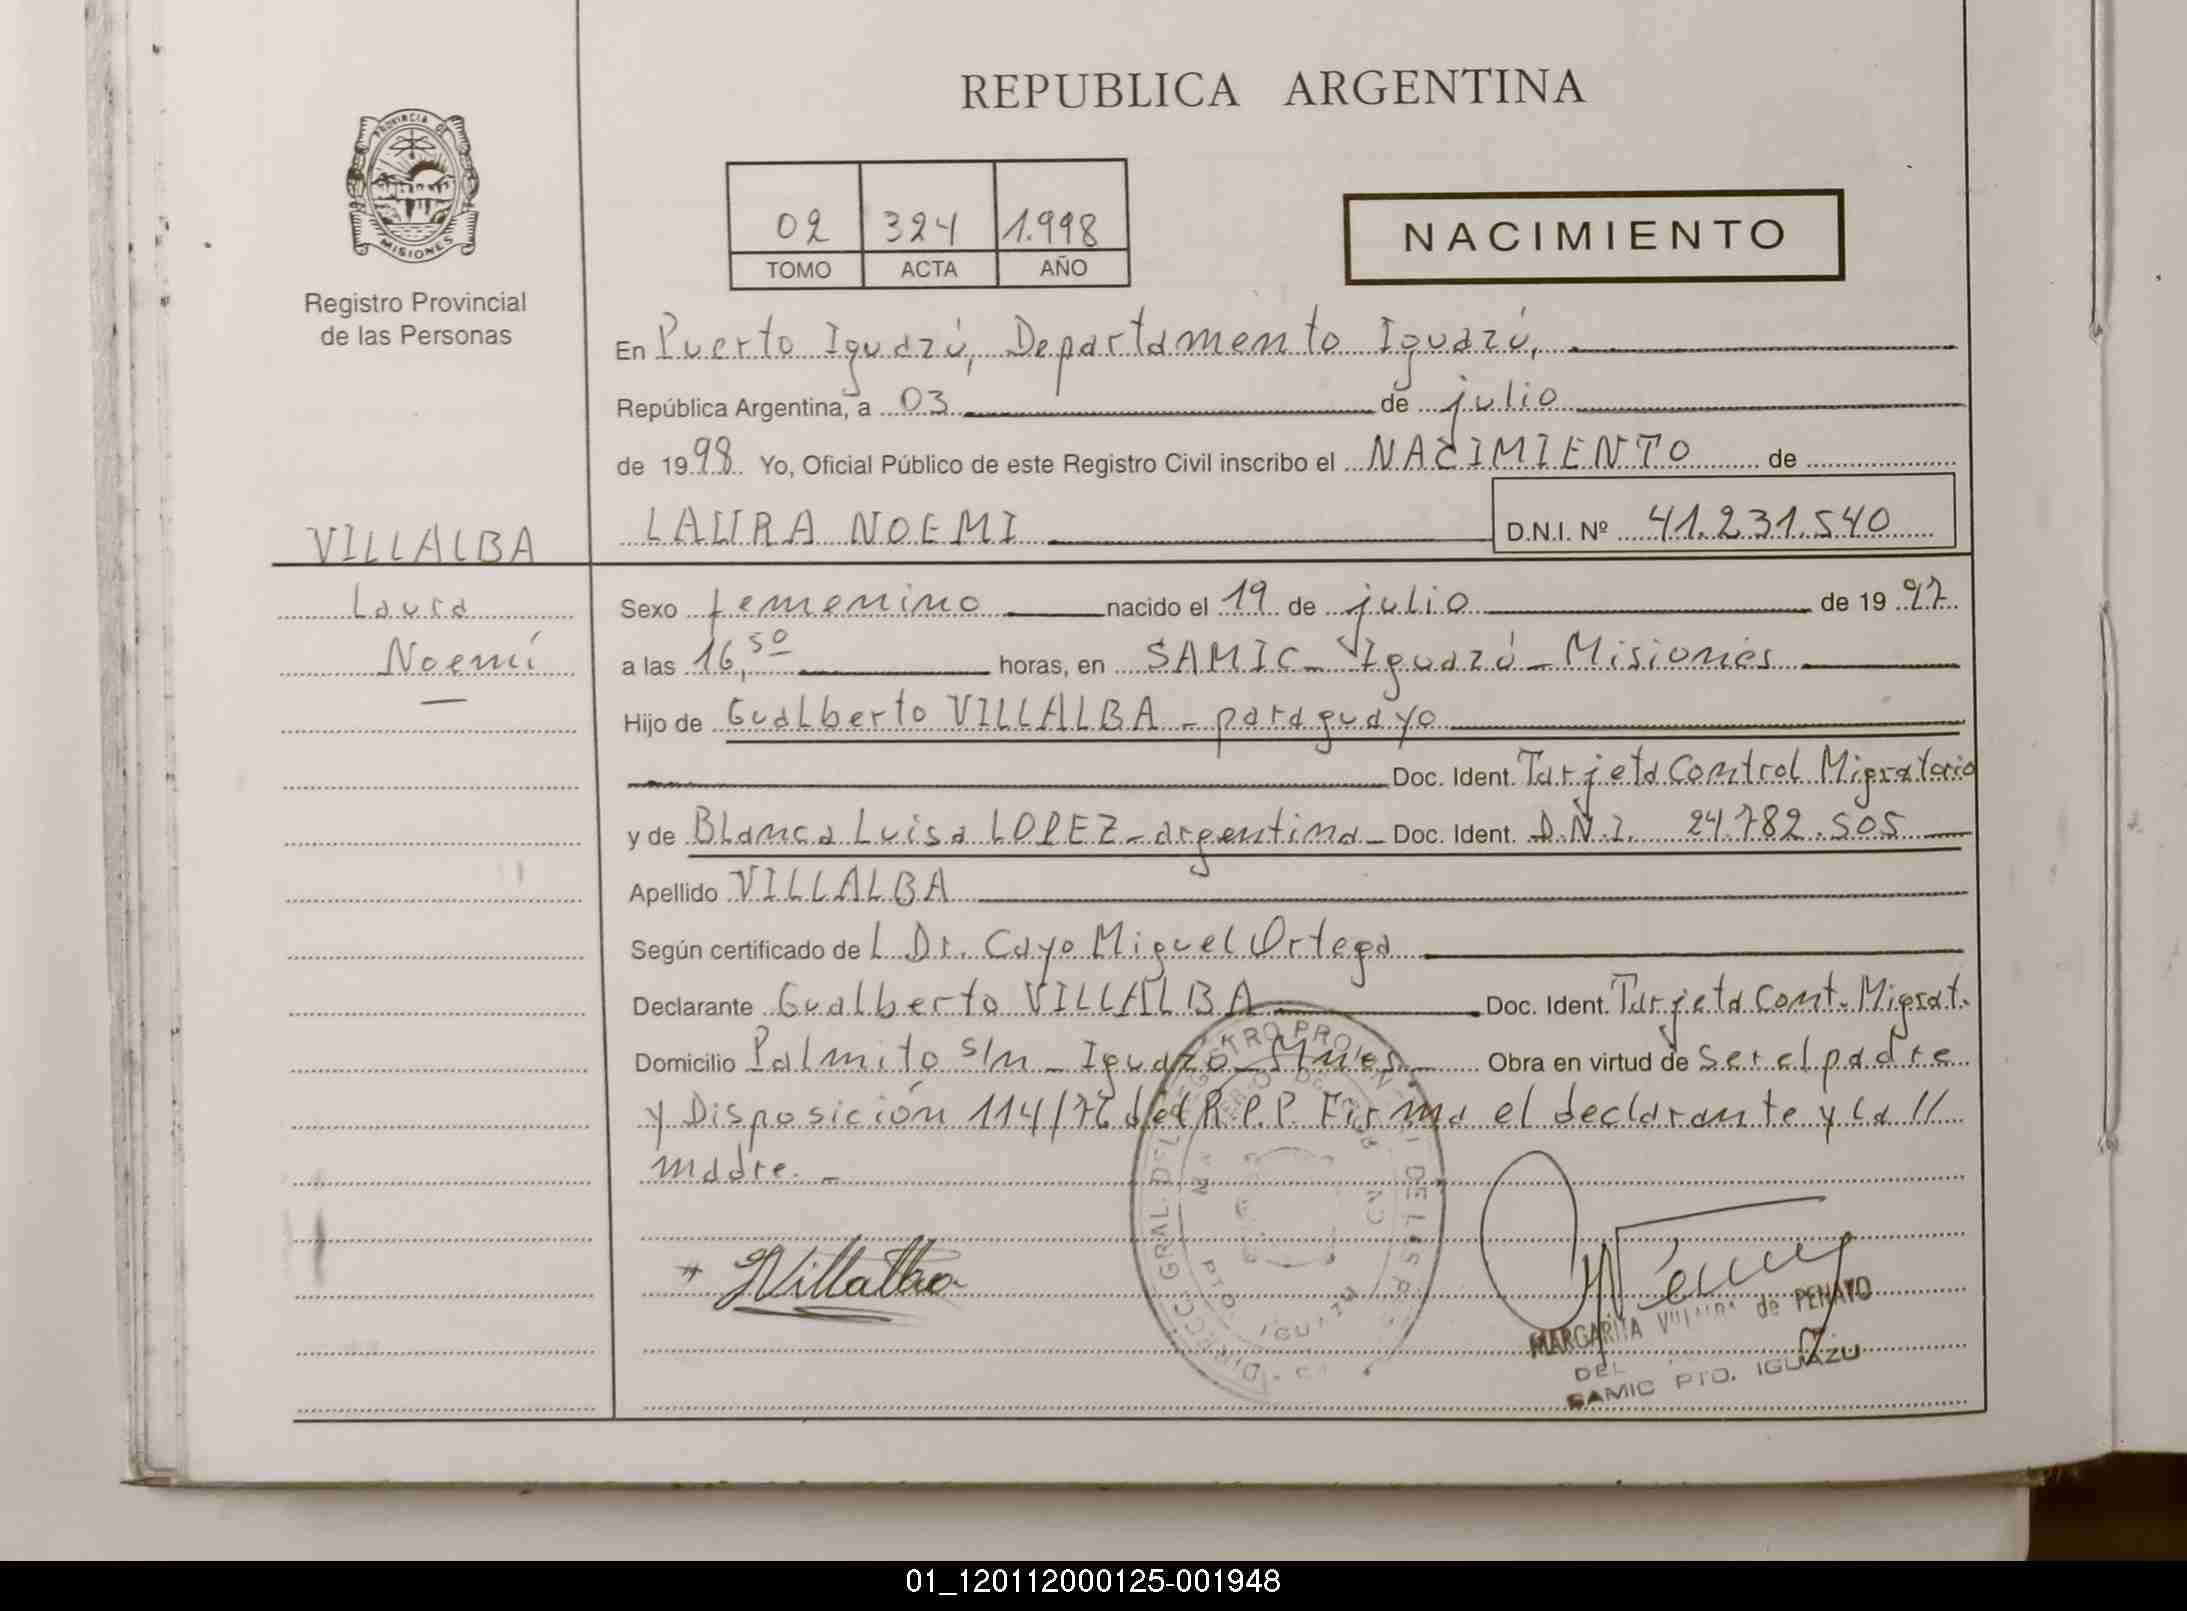 REPUBLICA ARGENTINA
PROVINCIA DE
MISIONES
Registro Provincial
de las Personas
02 324 1.998
TOMO ACTA AÑO
NACIMIENTO
En Puerto Iguazú, Departamento Iguazú,
República Argentina, a 03 de julio
de 1998 Yo, Oficial Público de este Registro Civil inscribo el NACIMIENTO de
VILLALBA
LAURA NOEMI D.N.I. Nº 41.231.540
Laura
Noemí
Sexo femenino nacido el 19 de julio de 1997
a las 16,50 horas, en SAMIC - Iguazú - Misiones
Hijo de Gualberto VILLALBA - paraguayo
Doc. Ident. Tarjeta Control Migratorio
y de Blanca Luisa LOPEZ - argentina - Doc. Ident. D.N.I. 24.782.505
Apellido VILLALBA
Según certificado de L Dr. Cayo Miguel Ortega
Declarante Gualberto VILLALBA Doc. Ident. Tarjeta Cont. Migrat.
Domicilio Palmito s/n - Iguazú - Mnes. Obra en virtud de ser el padre
y Disposición 114/76 del R.P.P. Firma el declarante y la //
madre. -
Villalba
MARGARITA VILLALBA de PENAYO
DEL
SAMIC PTO. IGUAZU
01_120112000125-001948